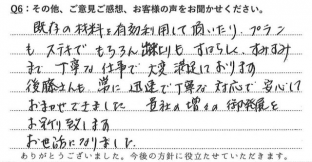 Q6：その他、ご意見ご感想、お客様の声をお聞かせください。
既存の材料を有効利用して頂いたり、プラン
もステキでもちろん  すばらしく、すみずみ
まで丁寧な仕事で大変満足しております
後藤さんも常に迅速で丁寧な対応で安心して
おまかせできました 貴社の増々の御発展を
お祈り致します
お世話になりました
ありがとうございました。今後の方針に役立たせていただきます。